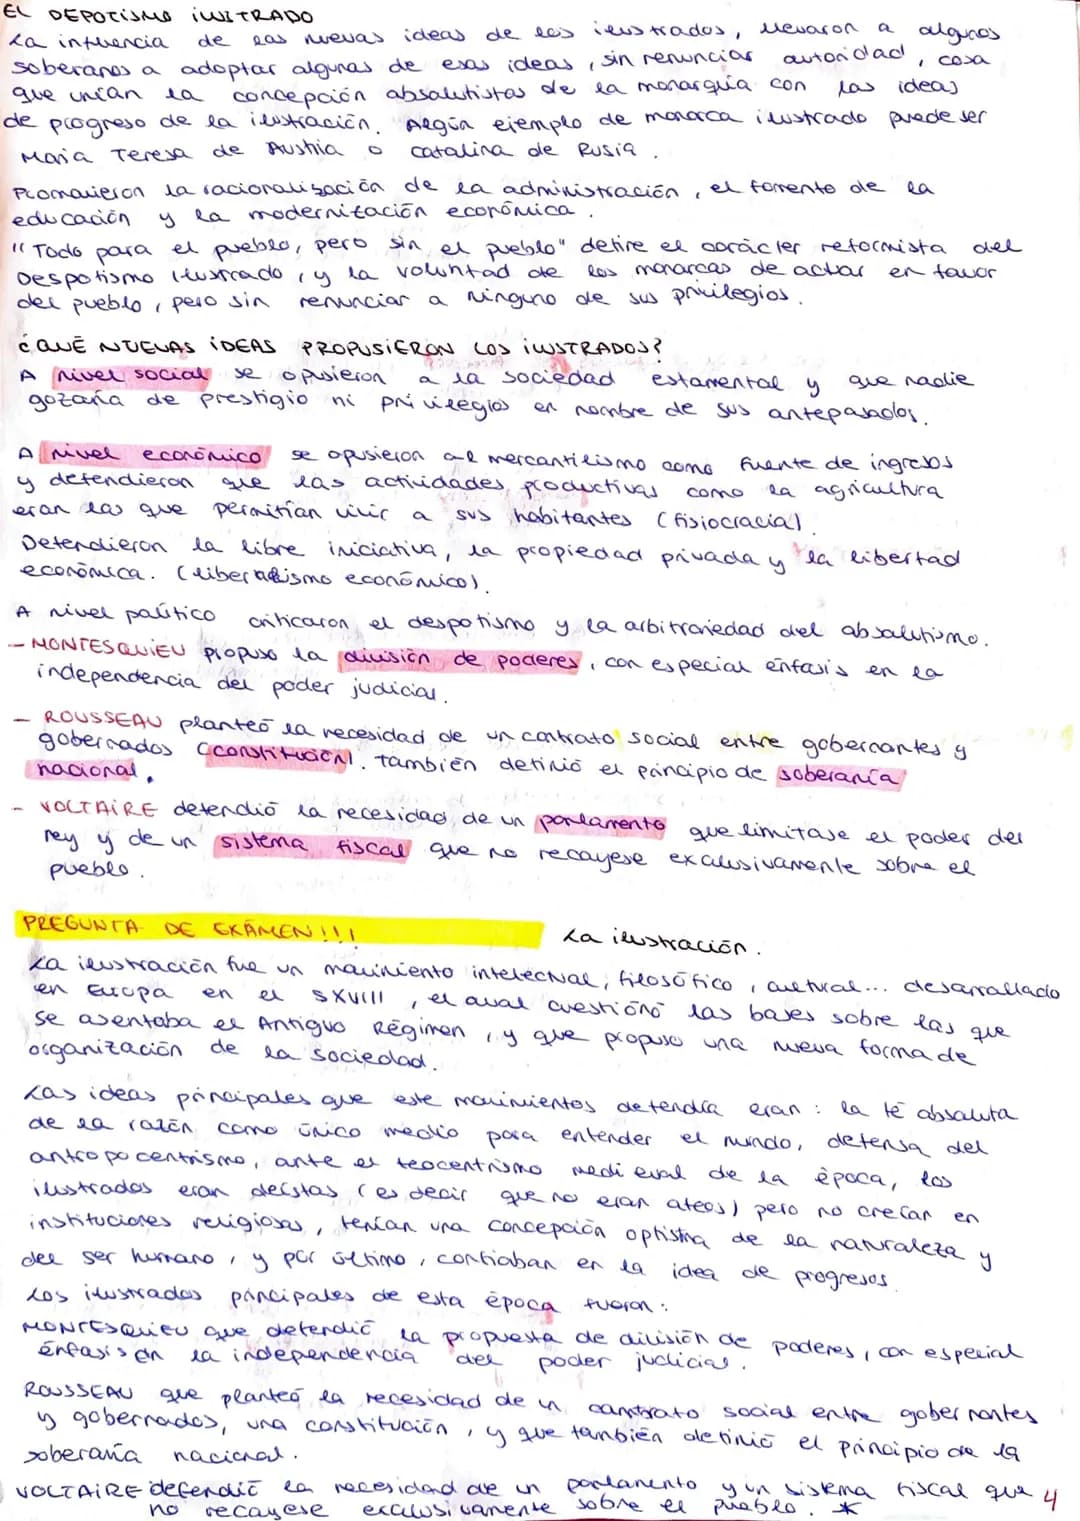 EL DEPOTISMO ILUSTRADO
La influencia de las nuevas ideas de los ilustrados, llevaron a algunos
soberanos a adoptar algunas de esas ideas, sin renunciar autoridad, cosa
que unían la concepción absolutistas de la monarquía con las ideas
de progreso de la ilustración. Algún ejemplo de monarca ilustrado puede ser
Maria Teresa de Austria o Catalina de Rusia.
Promovieron la racionalización de la administración, el fomento de la
educación y la modernización económica.
"Todo para el pueblo, pero sin el pueblo" define el carácter reformista del
Despotismo Ilustrado, y la voluntad de los monarcas de actuar en favor
del pueblo, pero sin renunciar a ninguno de sus privilegios.
¿QUÉ NUEVAS IDEAS PROPUSIERON LOS ILUSTRADOS?
A nivel social se opusieron a la sociedad estamental y que nadie
gozaría de prestigio ni privilegios en nombre de sus antepasados.
A nivel económico se opusieron al mercantilismo como fuente de ingresos
y defendieron que las actividades productivas como la agricultura
eran las que permitían vivir a sus habitantes (fisiocracia).
Defendieron la libre iniciativa, la propiedad privada y la libertad
económica. (liberalismo económico).
A nivel político criticaron el despotismo y la arbitrariedad del absolutismo.
- MONTESQUIEU propuso la división de poderes, con especial énfasis en la
independencia del poder judicial.
- ROUSSEAU planteó la necesidad de un contrato social entre gobernantes y
gobernados (constitución). También definió el principio de soberanía
nacional.
- VOLTAIRE defendió la necesidad de un parlamento que limitase el poder del
rey y de un sistema fiscal que no recayese exclusivamente sobre el
pueblo.
PREGUNTA DE EXÁMEN!!! La ilustración.
La ilustración fue un movimiento intelectual, filosófico, cultural... desarrollado
en Europa en el SXVIII, el cual cuestionó las bases sobre las que
se asentaba el Antiguo Régimen, y que propuso una nueva forma de
organización de la sociedad.
Las ideas principales que este movimientos defendía eran: la fé absoluta
de la razón como único medio para entender el mundo, defensa del
antropocentrismo, ante el teocentrismo medieval de la época, los
ilustrados eran deístas (es decir que no eran ateos) pero no creían en
instituciones religiosas, tenían una concepción optistma de la naturaleza y
del ser humano, y por último, confiaban en la idea de progresos.
Los ilustrados principales de esta época fueron:
MONTESQUIEU que defendió la propuesta de división de poderes, con especial
énfasis en la independencia del poder judicial.
ROUSSEAU que planteó la necesidad de un contrato social entre gobernantes
y gobernados, una constitución, y que también definió el principio de la
soberanía nacional.
VOLTAIRE defendió la necesidad de un parlamento y un sistema fiscal que
no recayese exclusivamente sobre el pueblo. *
4